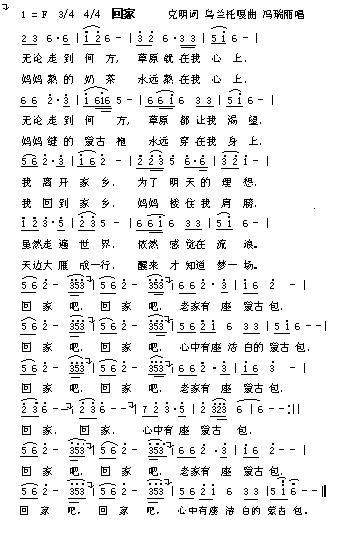 1 = F 3/4 4/4 回家 克明词 乌兰托嘎曲 冯瑞丽唱
2 3 6 · 6 | 1 2 6 - | 3 2 6 · 3 3 | 5 1 6 - |
无论 走 到 何 方, 草原 就 在我 心 上.
妈妈 熬 的 奶 茶 永远 熬 在我 心 上.
6 6 2 · 3 | 1 6 1 6 5 - | 6 6 1 6 3 3 | 5 1 6 - |
无论 走 到 何 方, 草原 都 让我 渴 望.
妈妈 缝 的 蒙古 袍 永远 穿 在我 身 上.
5 6 2 · 3 | 1 6 2 - | 2 2 3 5 6 · 6 | 3 2 1 - |
我 离 开 家 乡. 为了 明 天的 理 想.
我 回 到 家 乡. 妈妈 搂住 我 肩 膀.
1 2 3 · 5 | 2 3 5 - | 6 6 1 6 3 3 | 5 1 6 - |
虽然 走 遍 世 界. 依然 感 觉在 流 浪。
天边 大 雁 成一 行, 醒来 才 知道 梦一 场。
5 6 2 - 353 | 5 6 2 - 353 | 5 6 6 2 · 1 | 6 - - |
回 家 吧. 回 家 吧. 老家 有 座 蒙古 包.
5 6 2 - 353 | 5 6 2 - 353 | 5 6 2 1 6 3 3 | 5 1 6 - - |
回 家 吧. 回 家 吧. 心中有座 洁 白的 蒙古 包.
5 6 2 - 353 | 5 6 2 - 353 | 5 6 6 2 · 1 | 6 3 - - |
回 家 吧. 回 家 吧. 老家 有 座 蒙古 包.
2 3 6 - - | 2 3 6 - - | 7 2 3 · 5 | 2 323 6 | 6 - - :||
回 家. 回 家. 心中 有 座 蒙古 包.
5 6 2 - 353 | 5 6 2 - 353 | 5 6 6 2 · 1 | 6 - - |
回 家 吧. 回 家 吧. 老家 有 座 蒙古 包.
5 6 2 - 353 | 5 6 2 - 353 | 5 6 2 1 6 3 3 | 5 1 6 - - ||
回 家 吧. 回 家 吧. 心中有座 洁 白的 蒙古 包.